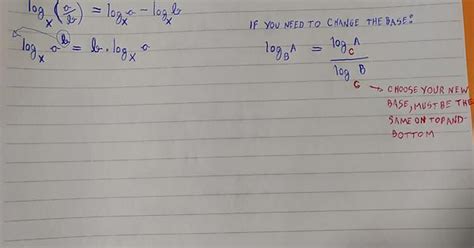 log_x(a/b) = log_x a - log_x b
log_x a^b = b · log_x a
IF YOU NEED TO CHANGE THE BASE:
log_B A = log_C A / log_C B
C → CHOOSE YOUR NEW
BASE, MUST BE THE
SAME ON TOP AND
BOTTOM